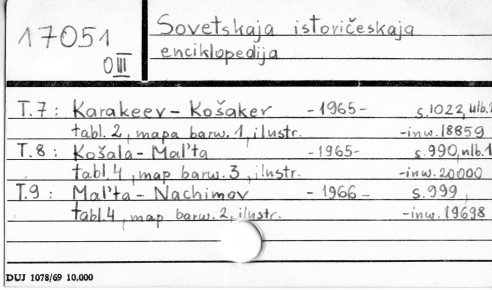 17051
O III
Sovetskaja istoričeskaja
enciklopedija
T.7: Karakeev - Košaker - 1965 - s.1022, nlb.
tabl. 2, mapa barw. 1, ilustr. - inw. 18859
T.8: Košala - Mal'ta - 1965 - s. 990, nlb. 1
tabl. 4, map barw. 3, ilustr. - inw. 20000
T.9: Mal'ta - Nachimov - 1966 - s. 999,
tabl. 4, map barw. 2, ilustr. - inw. 19698
DUJ 1078/69 10.000